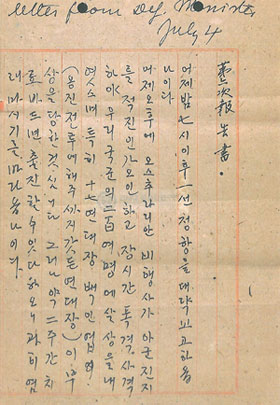 letter from Def. Minister
July 4
第二次報告書.
어제밤七시이후一선정항을대략보고하옵
나이다
어제오후에 오스추라리안비행사가아군진지
를적진인가오인하고장시간폭격,사격
하야우리국군의二百여명에살상을내
엿소며 특히 十七연대장 백인엽
(옹진전투에해주까지갓든연대장)이부
상을당한것 그러나약二주간치
료바드면 출진할수잇다하오니과히염
려마시기를바라옵나이다.